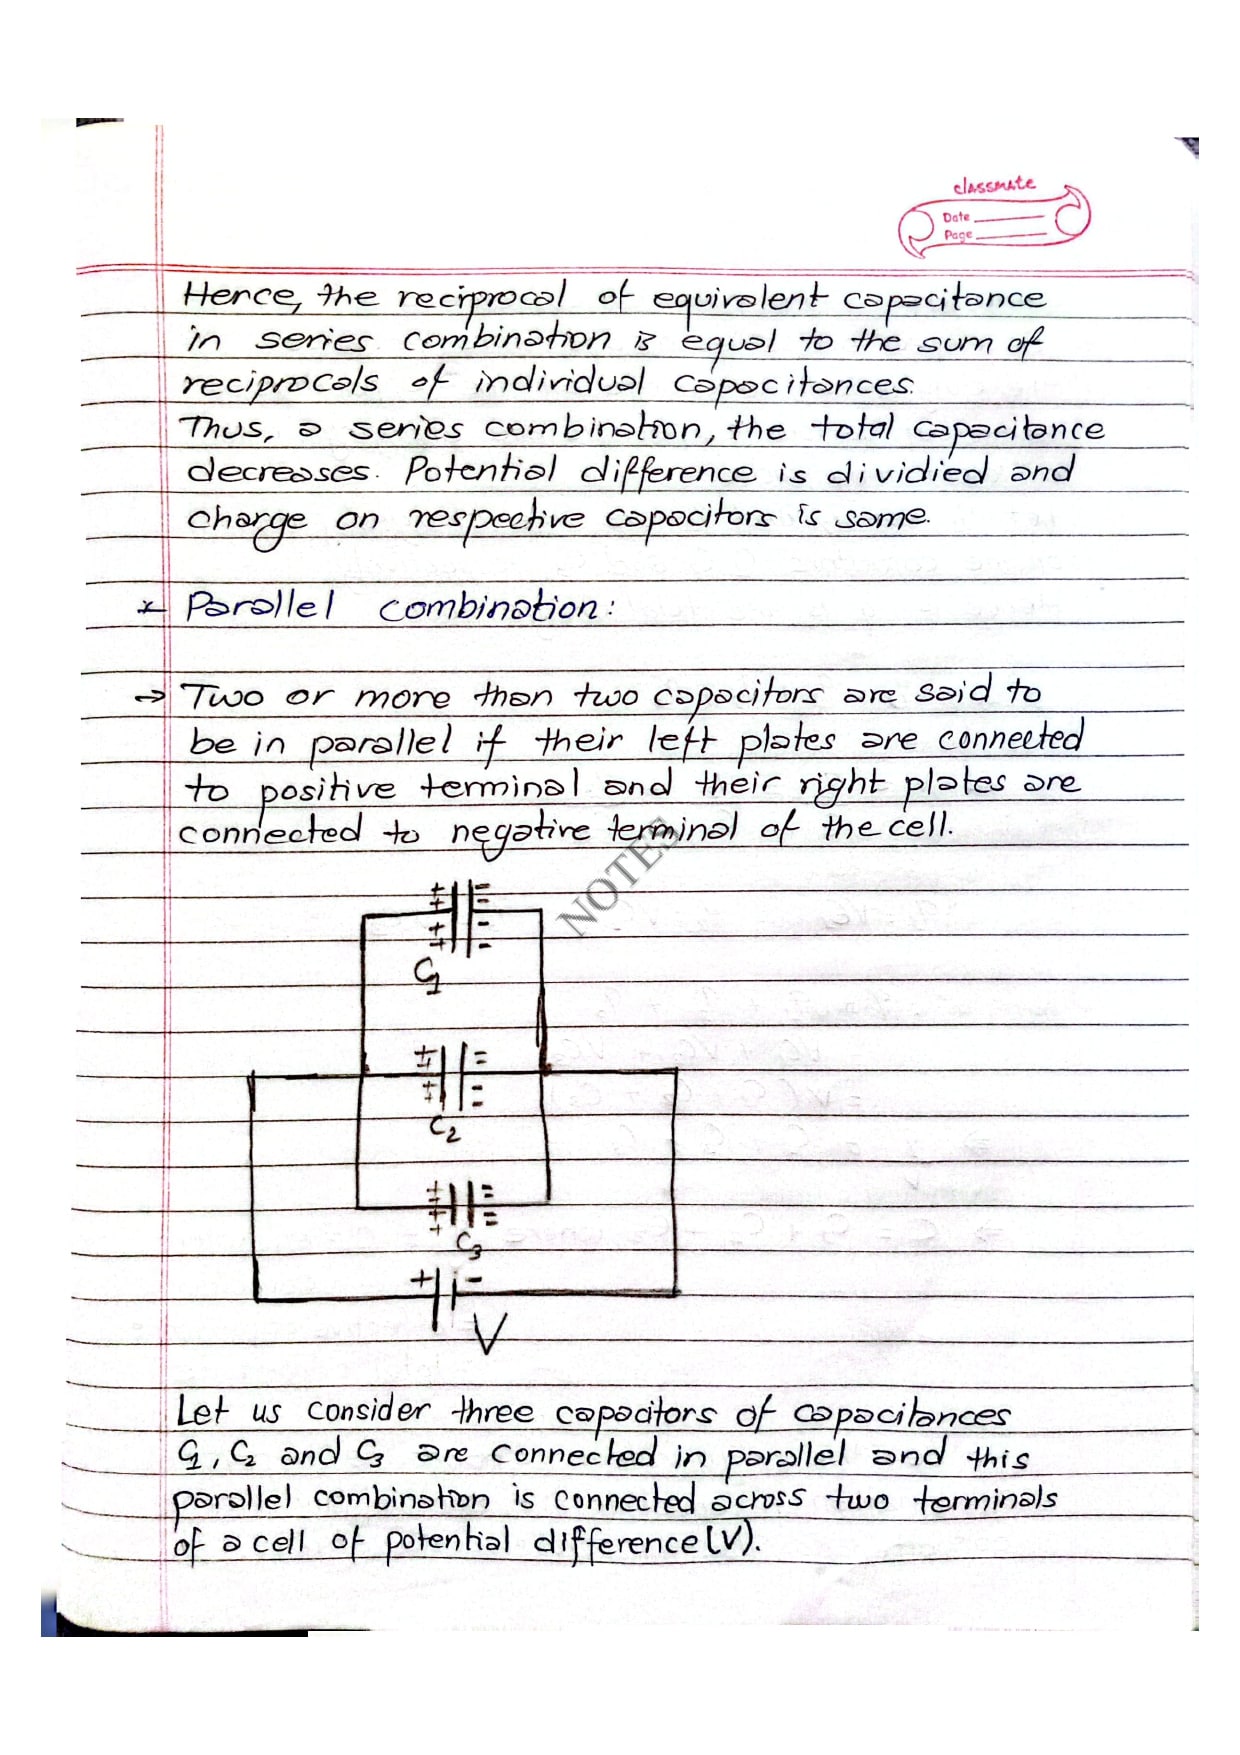 classmate
Date
Page
Hence, the reciprocal of equivalent capacitance
in series combination is equal to the sum of
reciprocals of individual capacitances.
Thus, a series combination, the total capacitance
decreases. Potential difference is dividied and
charge on respective capacitors is same.
* Parallel combination:
→ Two or more than two capacitors are said to
be in parallel if their left plates are connected
to positive terminal and their right plates are
connected to negative terminal of the cell.
NOTES
C1
C2
C3
+ -
V
Let us consider three capacitors of capacitances
C1, C2 and C3 are connected in parallel and this
parallel combination is connected across two terminals
of a cell of potential difference (V).